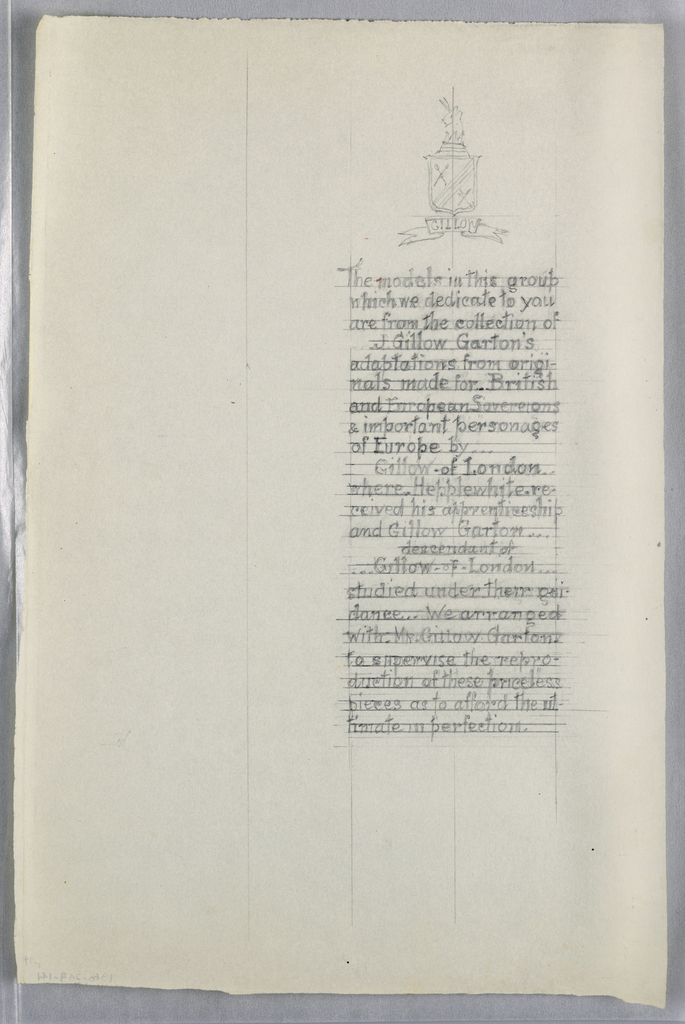 GILLOW
The models in this group
which we dedicate to you
are from the collection of
J Gillow Garton's
adaptations from origi-
nals made for British
and European Sovereigns
& important personages
of Europe by...
Gillow-of London..
where Hepplewhite re-
ceived his apprenticeship
and Gillow Garton...
descendant of
...Gillow-of-London...
studied under their gui-
dance... We arranged
with Mr. Gillow Garton
to supervise the repro-
duction of these priceless
pieces as to afford the ul-
timate in perfection.